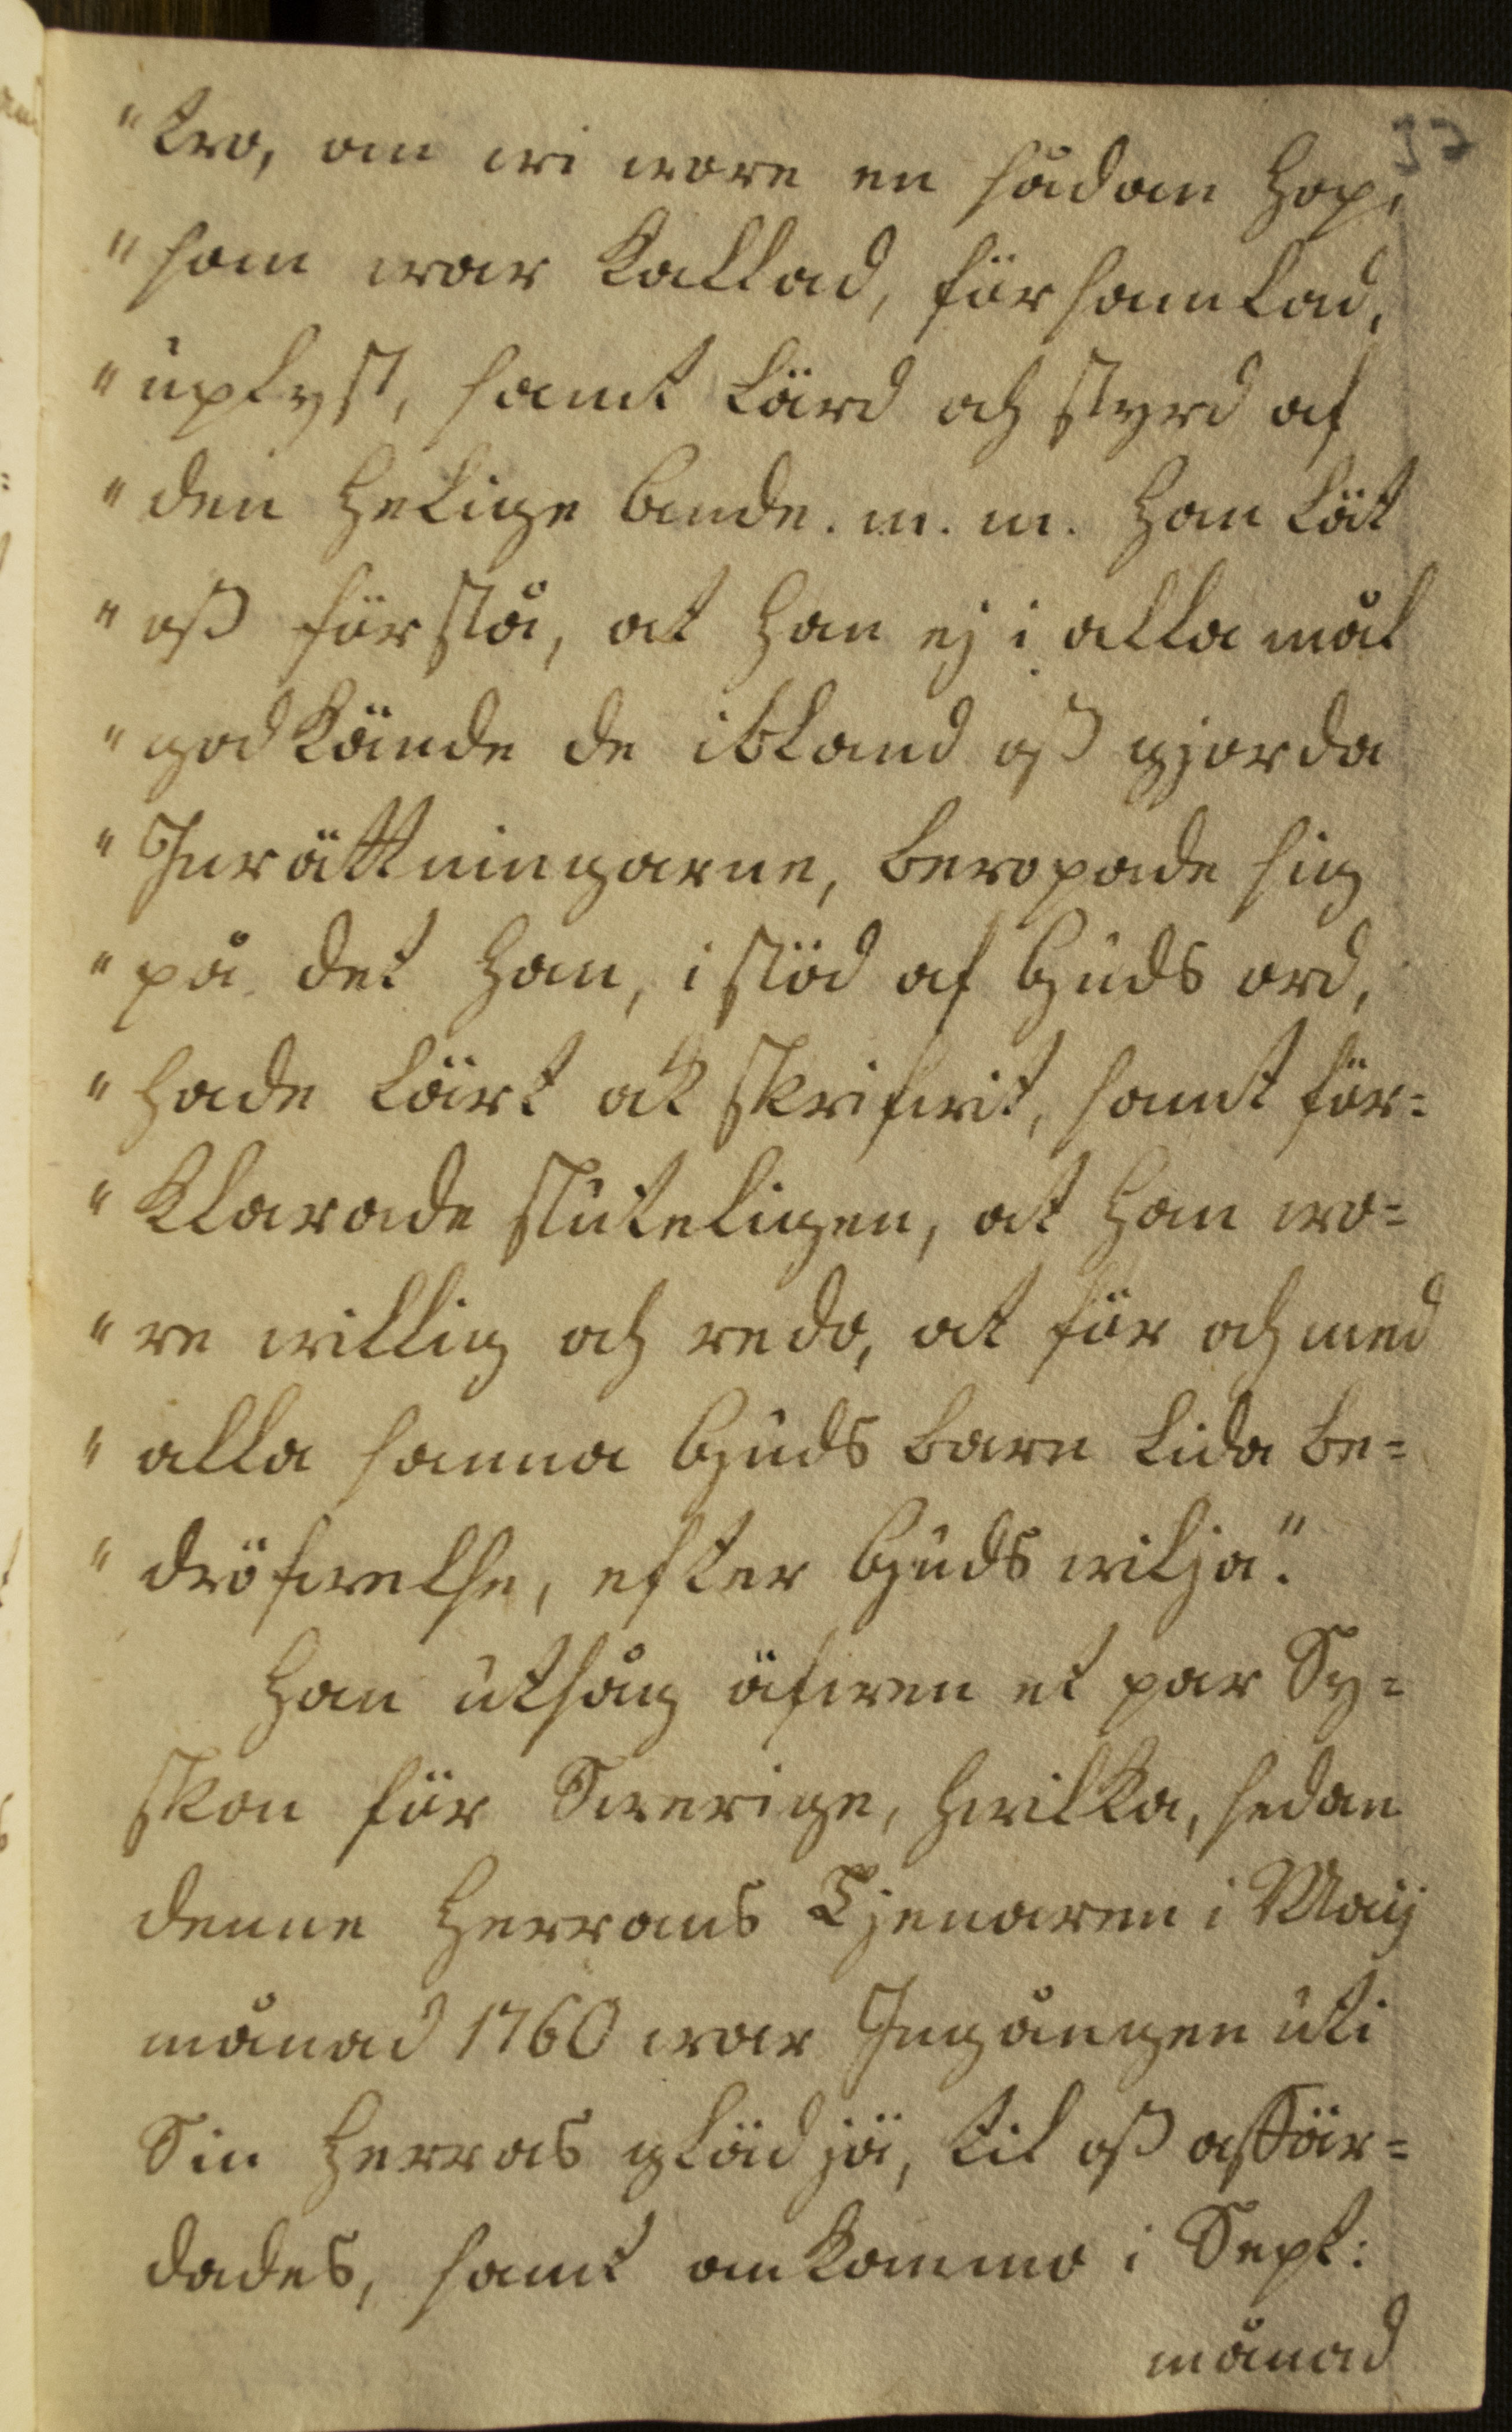 37
"tro, om wi wore en sådan hop,
"som war kallad, församlad,
"uplyst, samt lärd och styrd af
"den helige Ande. m. m. Han lät
"oß förstå, at han ej i alla mål
"godkände de ibland oß gjorda
"Inrättningarne, beropade sig
"på det han, i stöd af Guds ord,
"hade lärt ok skrifwit, samt för=
"klarade sluteligen, at han wo=
"re willig och redo, at för och med
"alla sanna Guds barn lida be=
"dröfwelse, efter Guds wilja."
Han utsåg äfwen et par Sy=
skon för Swerige, hwilka, sedan
denne Herrans Tjenaren i Maij
månad 1760 war Ingången uti
Sin Herras glädjä, til oß affär=
dades, samt ankommo i Sept:
månad